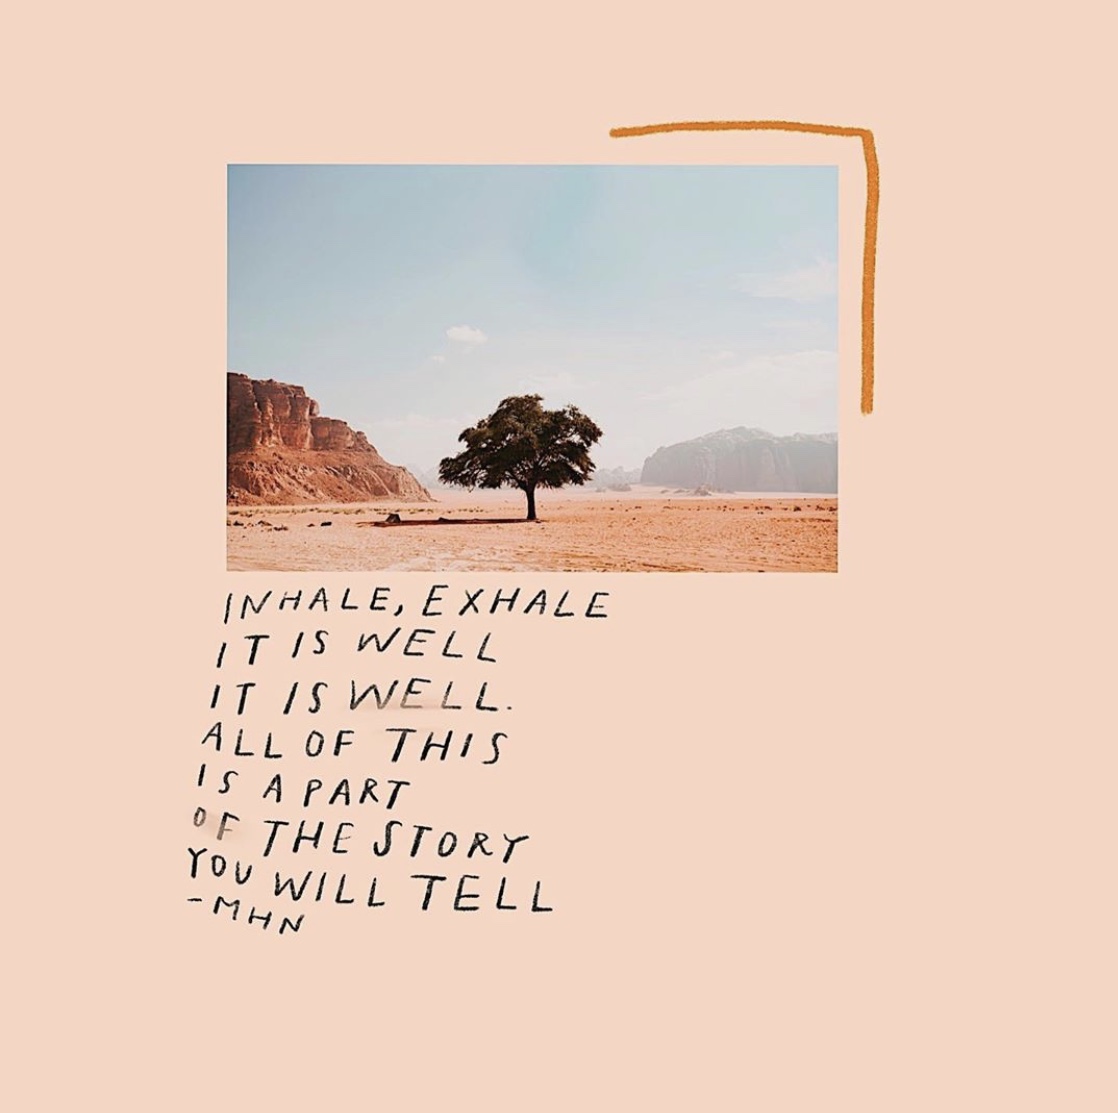 INHALE, EXHALE
IT IS WELL
IT IS WELL.
ALL OF THIS
IS A PART
OF THE STORY
YOU WILL TELL
-MHN